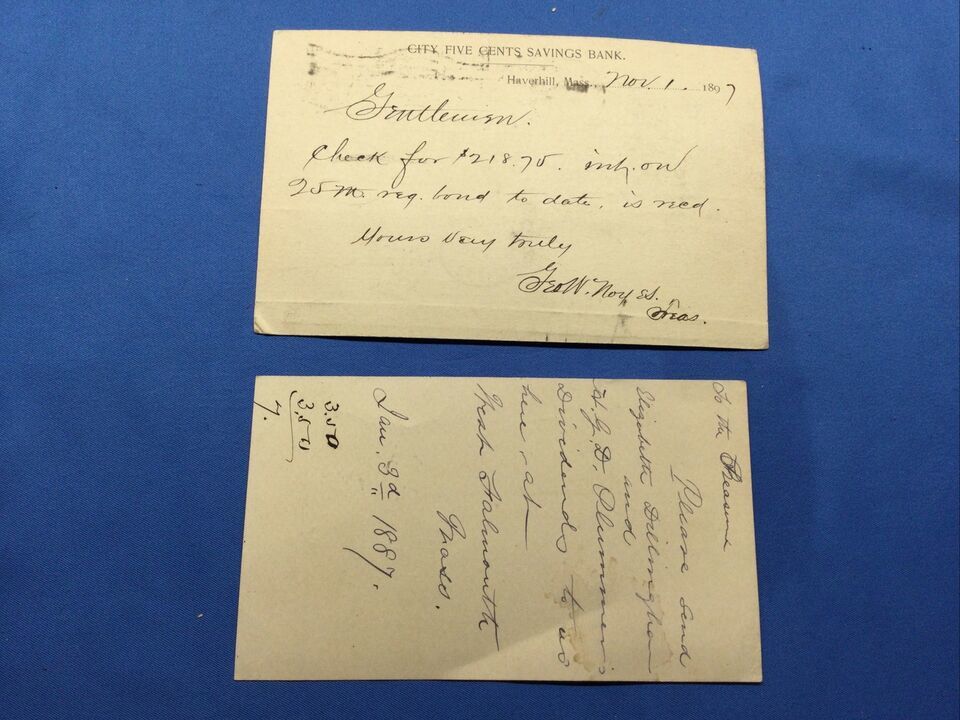 CITY FIVE CENTS SAVINGS BANK.
Haverhill, Mass. Nov. 1. 1897
Gentlemen.
Check for $218.75. int. on
25 M. reg. bond to date, is recd.
Yours Very truly
Geo W. Noyes.
Treas.
To the Treasurer
Please send
Elizabeth Dillingham
and
D. Plummer's
Dividends to us
here, at
West Falmouth
Mass.
Jan. 3d 1887.
3.50
3.50
7.